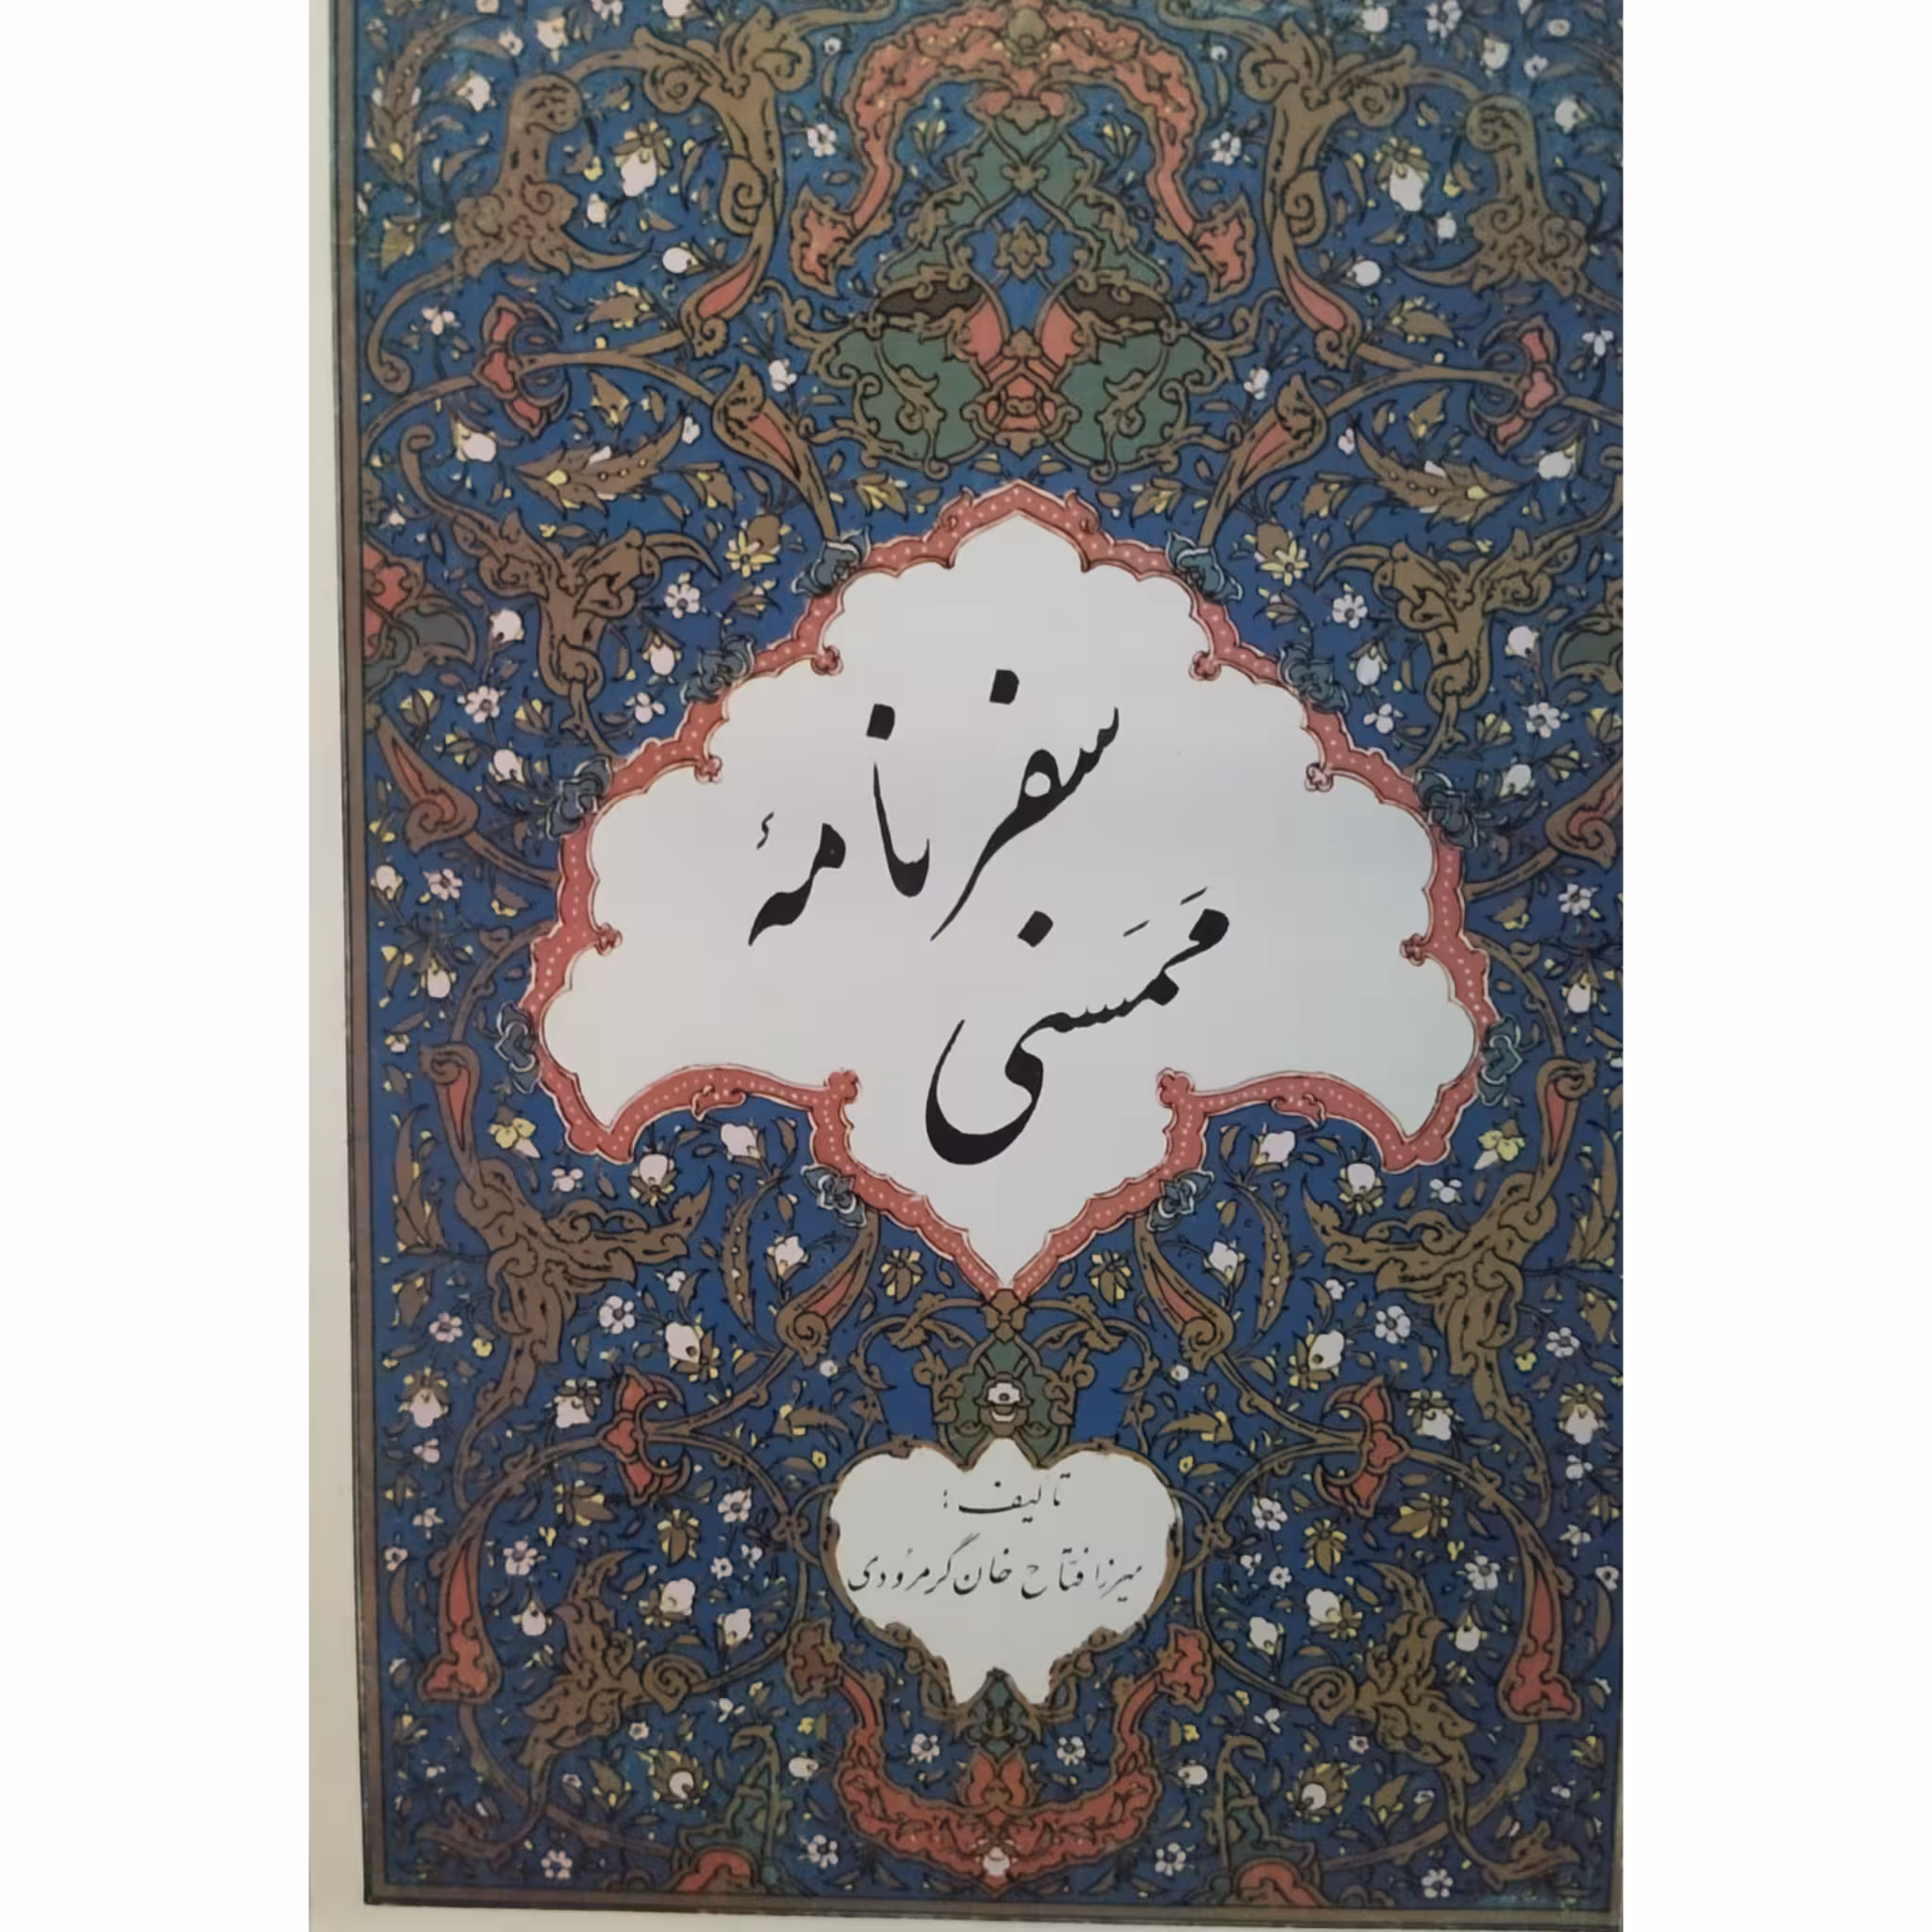 سفرنامهٔ
مَمَسنی
تألیف :
میرزا فتّاح خان گرمرُودی